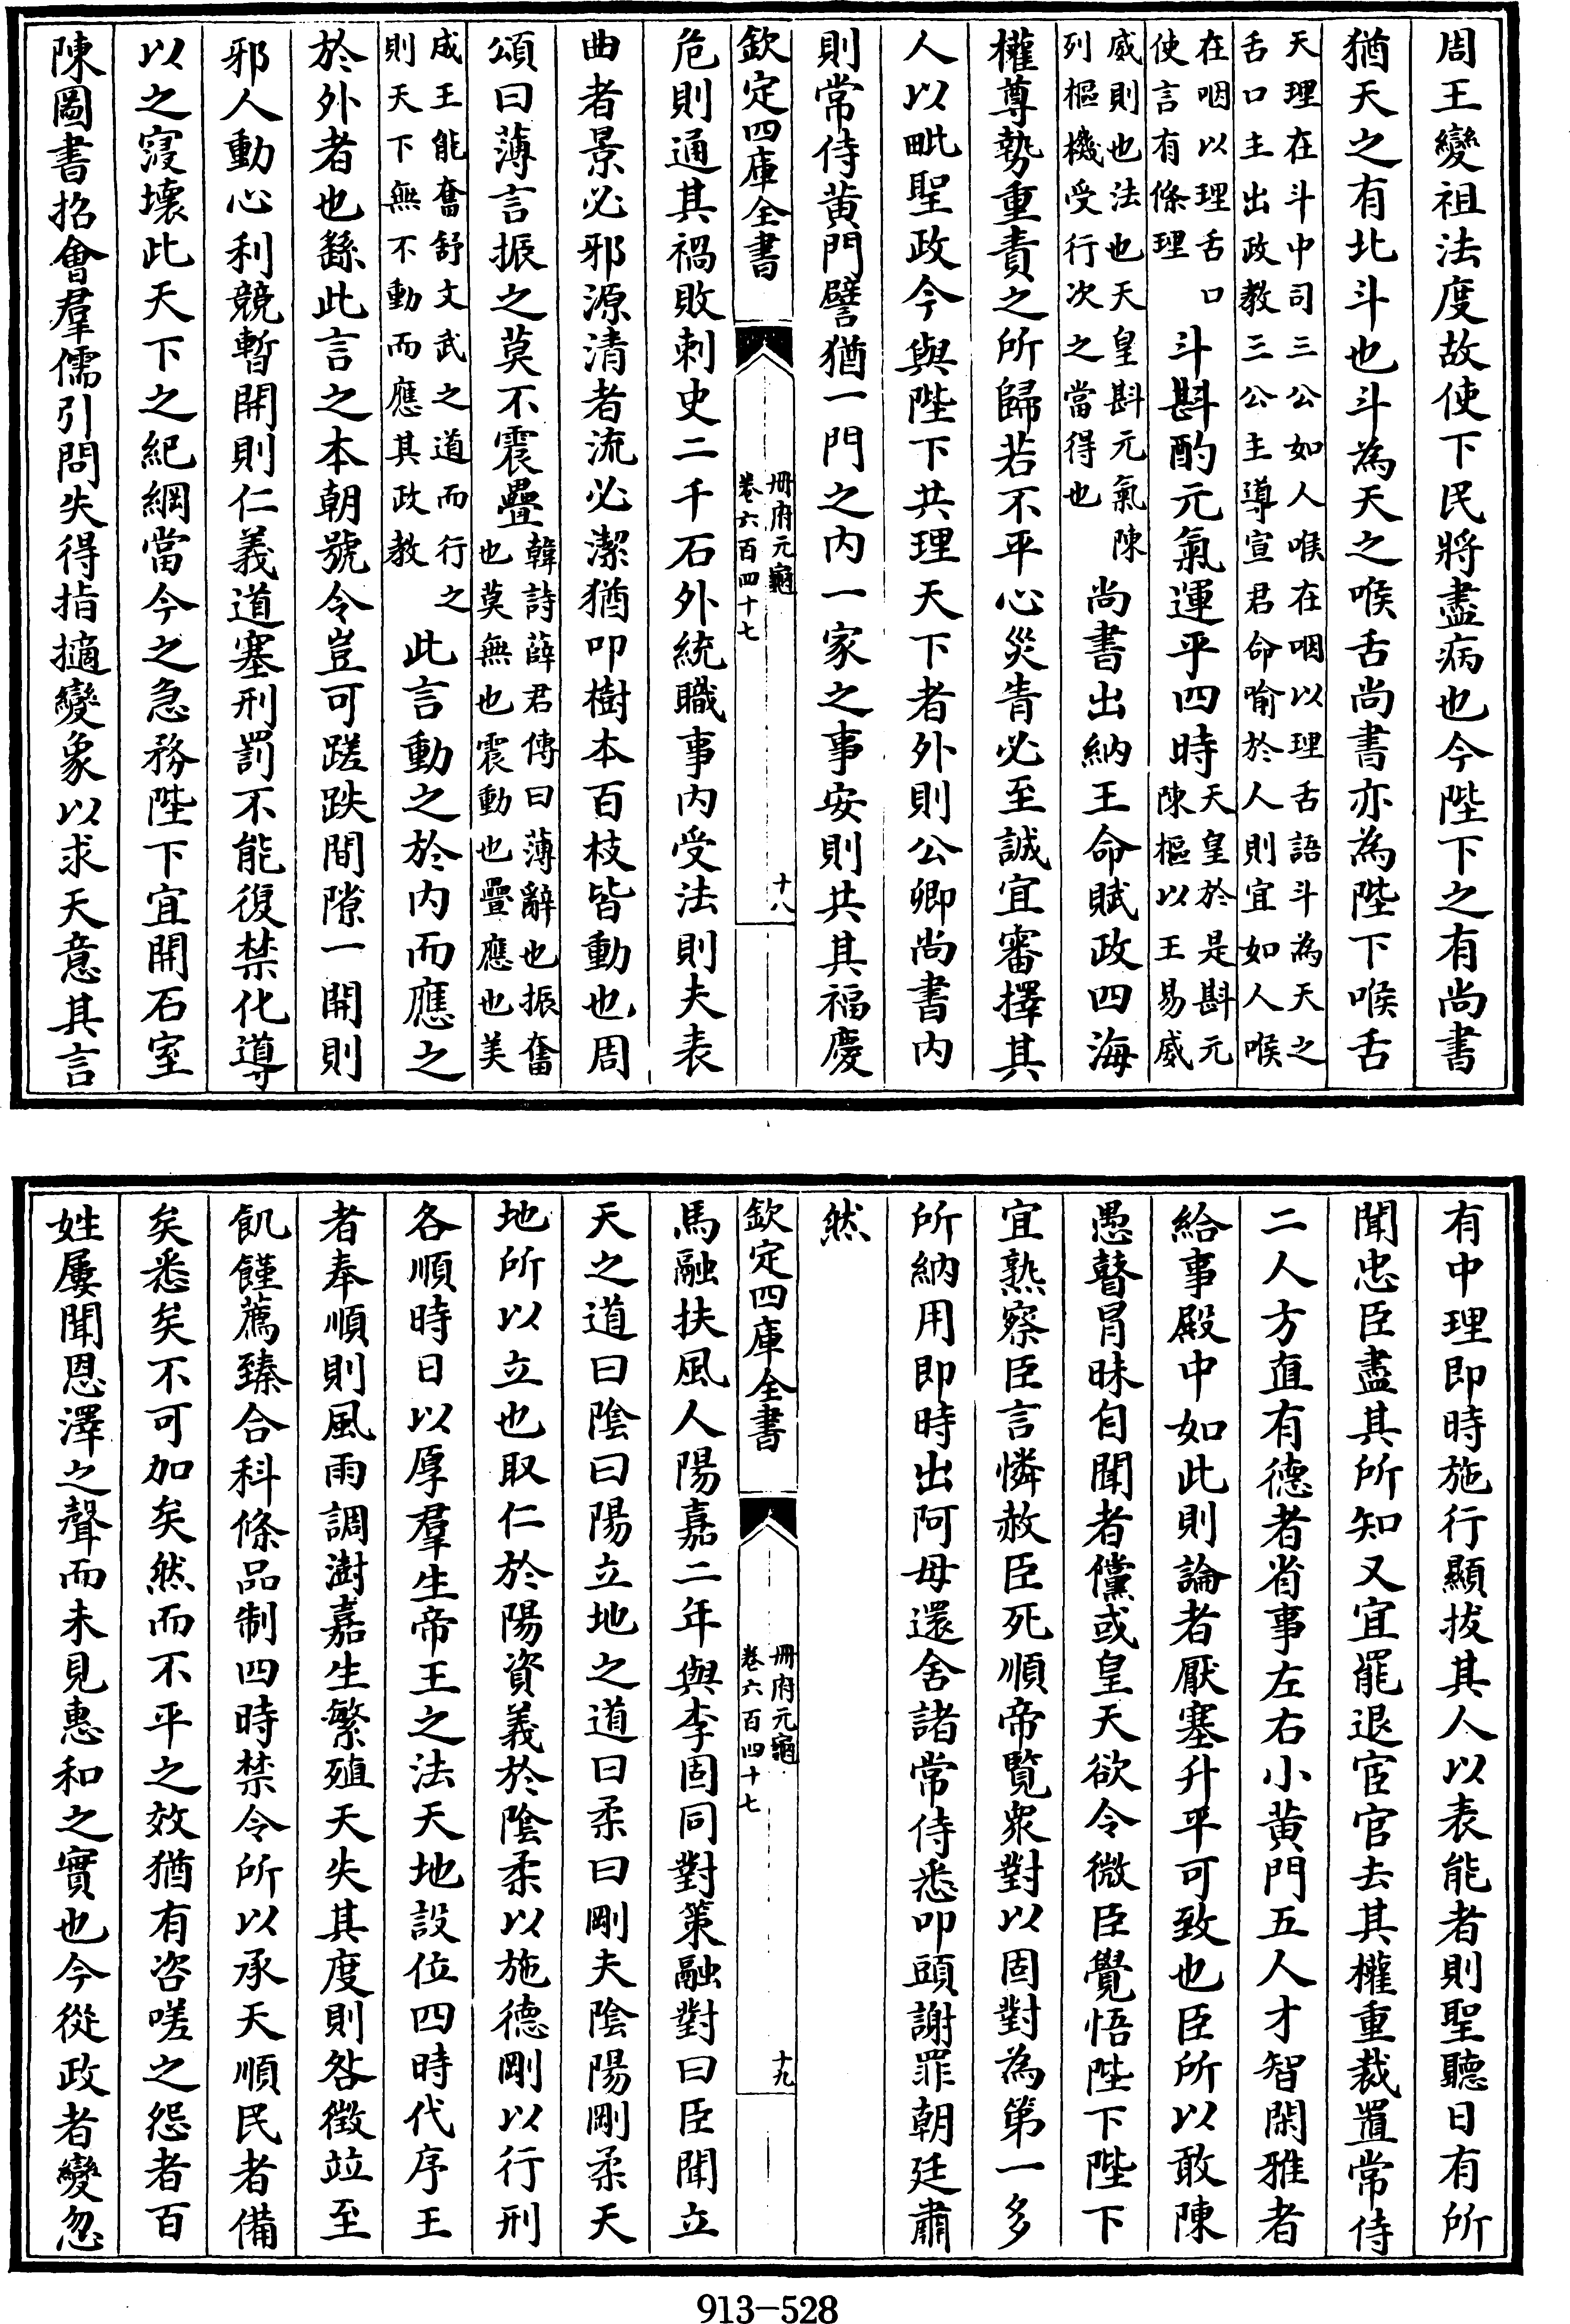 周王變祖法度故使下民將盡病也今陛下之有尚書
猶天之有北斗也斗為天之喉舌尚書亦為陛下喉舌
天理在斗中司三公如人喉在咽以理舌語斗為天之
舌口主出政教三公主導宣君命喻於人則宜如人喉
在咽以理舌口
使言有條理
斗斟酌元氣運乎四時
天皇於是斟元
陳樞以王易威
威則也法也天皇斟元氣陳
列樞機受行次之當得也
尚書出納王命賦政四海
權尊勢重責之所歸若不平心災眚必至誠宜審擇其
人以毗聖政今與陛下共理天下者外則公卿尚書内
則常侍黄門譬猶一門之内一家之事安則共其福慶
欽定四庫全書
冊府元龜
卷六百四十七
十八
危則通其禍敗刺史二千石外統職事内受法則夫表
曲者景必邪源清者流必潔猶叩樹本百枝皆動也周
頌曰薄言振之莫不震疊
韓詩薛君傳曰薄辭也振奮
也莫無也震動也疊應也美
成王能奮舒文武之道而行之
則天下無不動而應其政教
此言動之於内而應之
於外者也繇此言之本朝號令豈可蹉跌間隙一開則
邪人動心利競暫開則仁義道塞刑罰不能復禁化導
以之寖壞此天下之紀綱當今之急務陛下宜開石室
陳圖書招會羣儒引問失得指擿變象以求天意其言
有中理即時施行顯拔其人以表能者則聖聽日有所
聞忠臣盡其所知又宜罷退宦官去其權重裁置常侍
二人方直有德者省事左右小黄門五人才智閑雅者
給事殿中如此則論者厭塞升平可致也臣所以敢陳
愚瞽冒昧自聞者儻或皇天欲令微臣覺悟陛下陛下
宜熟察臣言憐赦臣死順帝覧衆對以固對為第一多
所納用即時出阿母還舍諸常侍悉叩頭謝罪朝廷肅
然
欽定四庫全書
冊府元龜
卷六百四十七
十九
馬融扶風人陽嘉二年與李固同對策融對曰臣聞立
天之道曰陰曰陽立地之道曰柔曰剛夫陰陽剛柔天
地所以立也取仁於陽資義於陰柔以施德剛以行刑
各順時日以厚羣生帝王之法天地設位四時代序王
者奉順則風雨調澍嘉生繁殖天失其度則咎徵竝至
飢饉薦臻合科條品制四時禁令所以承天順民者備
矣悉矣不可加矣然而不平之效猶有咨嗟之怨者百
姓屢聞恩澤之聲而未見惠和之實也今從政者變忽
913-528